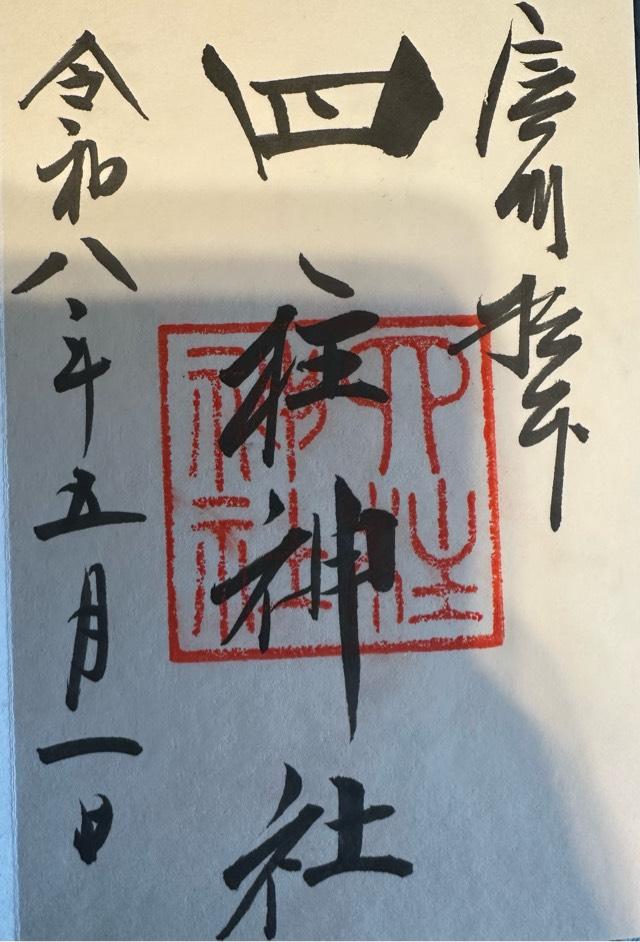 信州松本
四柱神社
令和八年五月一日
四柱
神社